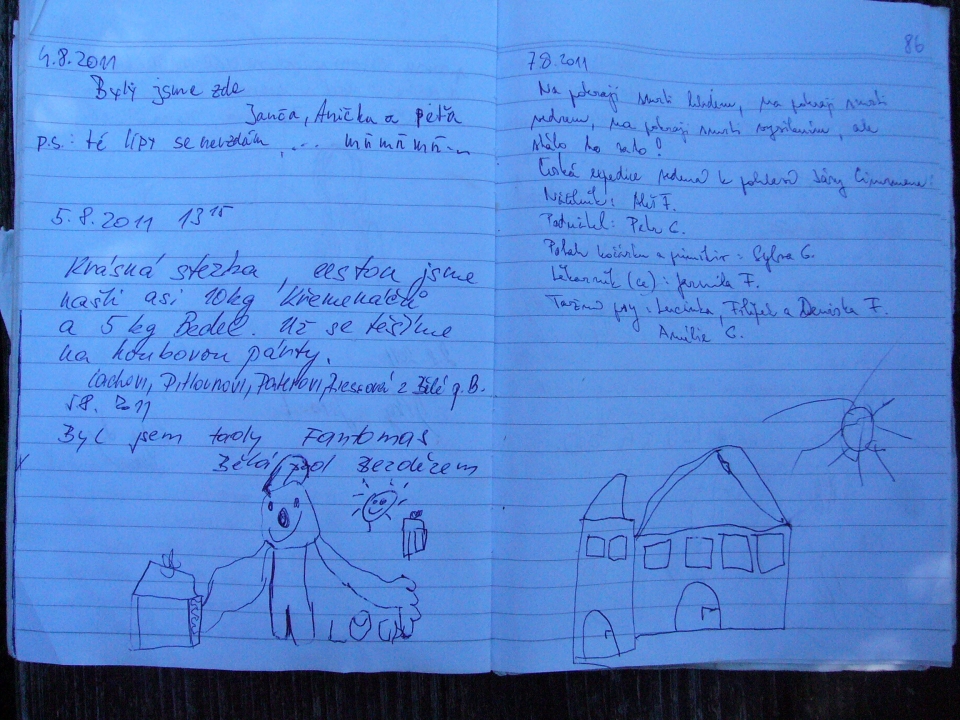 4.8.2011
Byly jsme zde
Janča, Anička a péťa
p.s.: té lípy se nevzdám, ... mň mň mň...
5.8.2011 13¹⁵
Krásná stezka, cestou jsme
našli asi 10kg Křemenáčů
a 5 kg Bedel. Už se těšíme
na houbovou párty.
Lachovi, Pitlounovi, Paterovi, z Bělé p.B.
5.8. 2011
Byl jsem tady Fantomas
Bělá pod Bezdězem
86
7.8.2011
Na pokraji smrti hladem, na pokraji smrti
na pokraji smrti vysílením, ale
stálo to za to!
Česká expedice k Járy Cimrmana:
Náčelník: Aleš F.
Petr C.
kočárku a : Sylva C.
Lékárník (ce): Jarmila F.
Tažní psy: Lucinka, Filípek a Deniska F.
Amálie C.